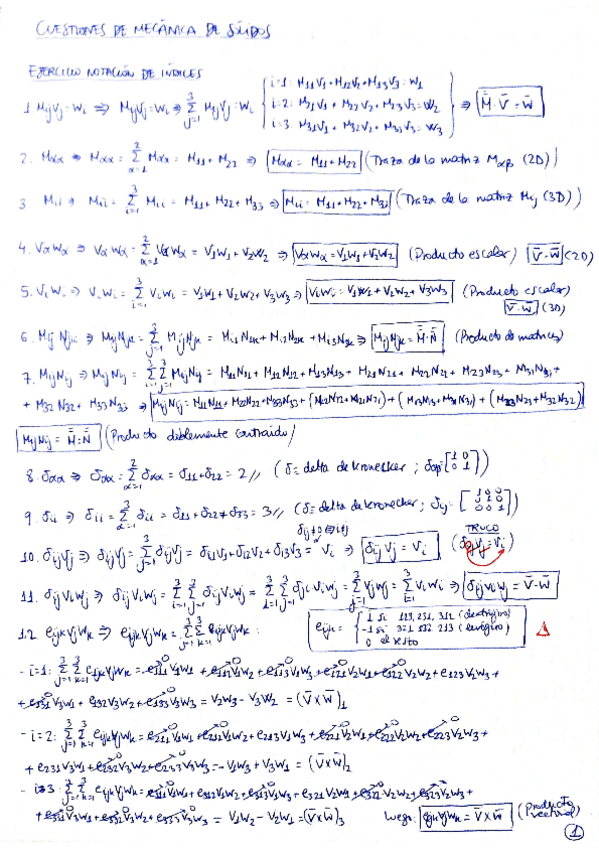 CUESTIONES DE MECÁNICA DE SÓLIDOS
EJERCICIO NOTACIÓN DE ÍNDICES
1. MijVj = Wi ⇒ MijVj = Wi ⇒ Σ(j=1→3) MijVj = Wi { i=1: M11V1 + M12V2 + M13V3 = W1
i=2: M21V1 + M22V2 + M23V3 = W2
i=3: M31V1 + M32V2 + M33V3 = W3 ⇒ M̿·V̄ = W̄
2. Mαα ⇒ Mαα = Σ(α=1→2) Mαα = M11 + M22 ⇒ Mαα = M11 + M22 (Traza de la matriz Mαβ (2D)
3 Mii ⇒ Mii = Σ(i=1→3) Mii = M11 + M22 + M33 ⇒ Mii = M11 + M22 + M33 (Traza de la matriz Mij (3D)
4. VαWα ⇒ VαWα = Σ(α=1→2) VαWα = V1W1 + V2W2 ⇒ VαWα = V1W1 + V2W2 (Producto escalar) V̄·W̄ (2D)
5. ViWi ⇒ ViWi = Σ(i=1→3) ViWi = V1W1 + V2W2 + V3W3 ⇒ ViWi = V1W1 + V2W2 + V3W3 (Producto escalar)
V̄·W̄ (3D)
6. Mij Njk ⇒ MijNjk = Σ(j=1→3) MijNjk = Mi1N1k + Mi2N2k + Mi3N3k ⇒ MijNjk = M̿·N̿ (Producto de matrices)
7. MijNij ⇒ MijNij = Σ(i=1→3) Σ(j=1→3) MijNij = M11N11 + M12N12 + M13N13 + M21N21 + M22N22 + M23N23 + M31N31 +
+ M32N32 + M33N33 ⇒ MijNij = M11N11 + M22N22 + M33N33 + (M12N12 + M21N21) + (M13N13 + M31N31) + (M23N23 + M32N32)
MijNij = M̿:N̿ (Producto doblemente contraído)
8. δαα ⇒ δαα = Σ(α=1→2) δαα = δ11 + δ22 = 2 // (δ ≡ delta de kronecker ; δαβ = [1 0 / 0 1])
9. δii ⇒ δii = Σ(i=1→3) δii = δ11 + δ22 + δ33 = 3 // (δ ≡ delta de kronecker ; δij = [1 0 0 / 0 1 0 / 0 0 1])
δij≠0 ⇔ i=j
TRUCO
10. δijVj ⇒ δijVj = Σ(j=1→3) δijVj = δi1V1 + δi2V2 + δi3V3 = Vi ⇒ δijVj = Vi (δijVj = Vi)
11. δijViWj ⇒ δijViWj = Σ(i=1→3) Σ(j=1→3) δijViWj = Σ(i=1→3) Σ(j=1→3) δjiViWj = Σ(j=1→3) VjWj = Σ(i=1→3) ViWi ⇒ δijViWj = V̄·W̄
12. eijkVjWk ⇒ eijkVjWk = Σ(j=1→3) Σ(k=1→3) eijkVjWk : eijk = { 1 si 123, 231, 312 (dextrógiro)
-1 si 321 132 213 (levógiro)
0 el resto
- i=1: Σ(j=1→3) Σ(k=1→3) eijkVjWk = e111V1W1 + e112V1W2 + e113V1W3 + e121V2W1 + e122V2W2 + e123V2W3 +
+ e131V3W1 + e132V3W2 + e133V3W3 = V2W3 - V3W2 = (V̄×W̄)1
- i=2: Σ(j=1→3) Σ(k=1→3) eijkVjWk = e211V1W1 + e212V1W2 + e213V1W3 + e221V2W1 + e222V2W2 + e223V2W3 +
+ e231V3W1 + e232V3W2 + e233V3W3 = -V1W3 + V3W1 = (V̄×W̄)2
- i=3: Σ(j=1→3) Σ(k=1→3) eijkVjWk = e311V1W1 + e312V1W2 + e313V1W3 + e321V2W1 + e322V2W2 + e323V2W3 +
+ e331V3W1 + e332V3W2 + e333V3W3 = V1W2 - V2W1 = (V̄×W̄)3 luego: eijkVjWk = V̄×W̄ (Producto vectorial)
1